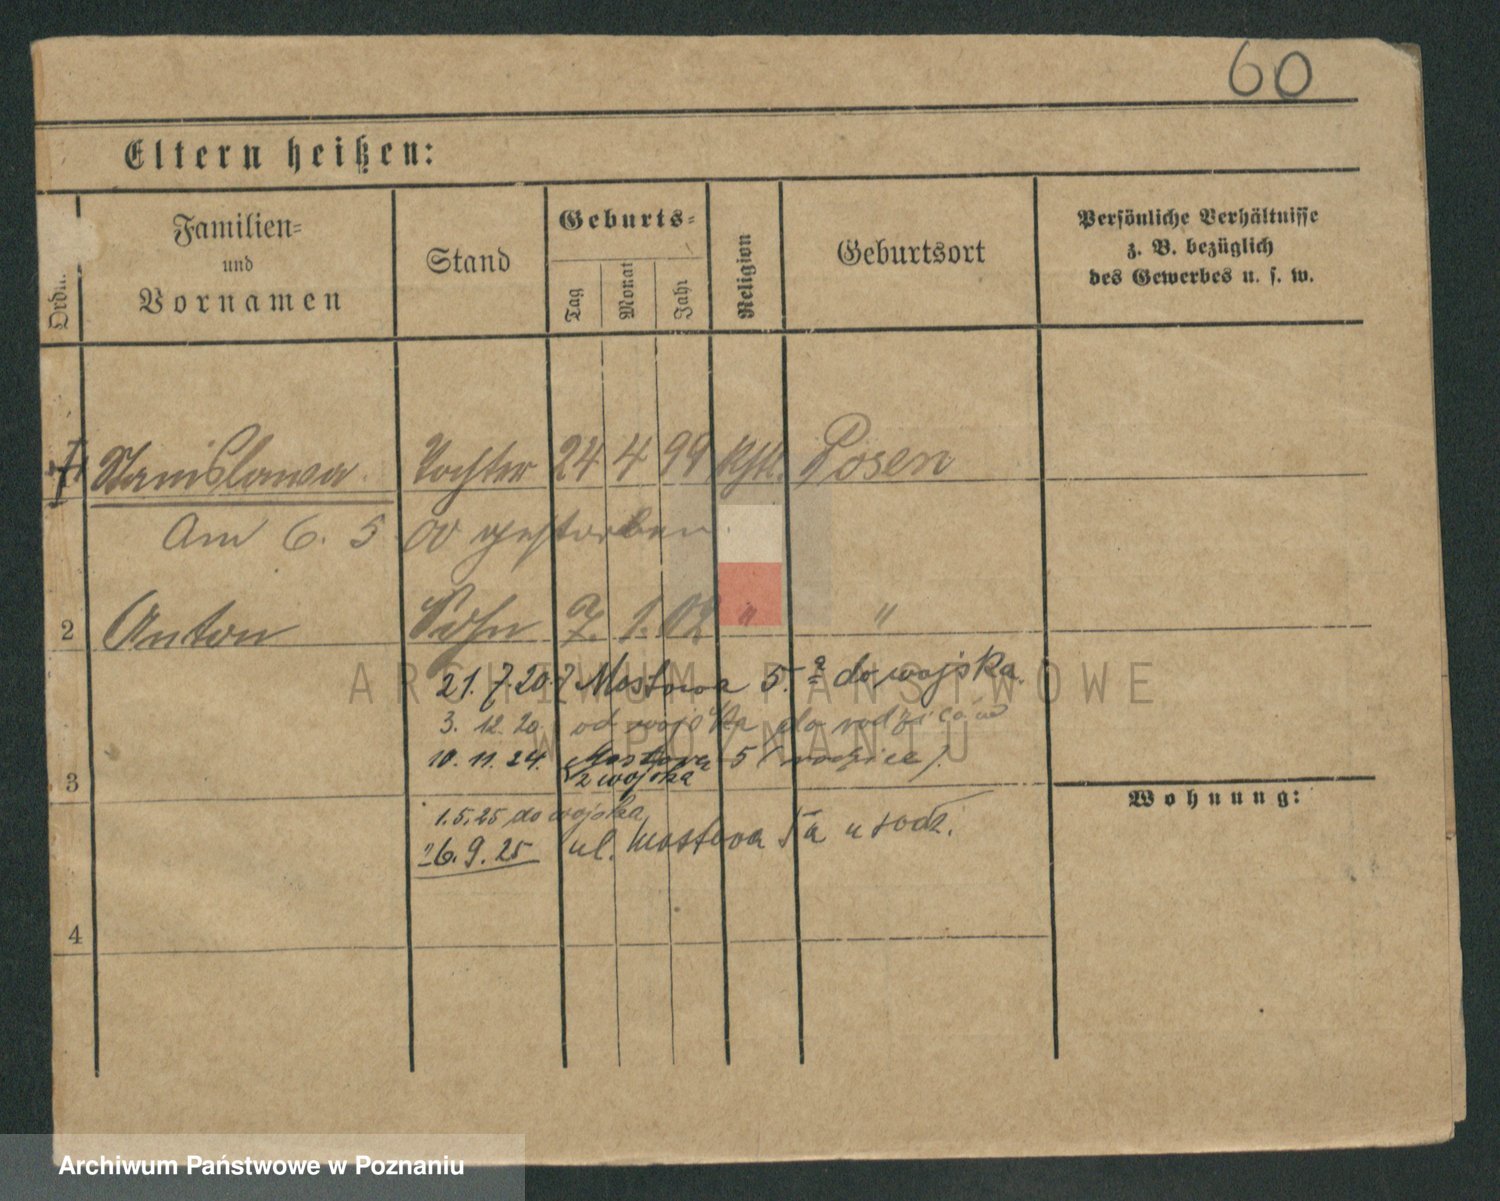 60
Eltern heißen:
Familien=
und
Vornamen
Stand
Geburts=
Tag
Monat
Jahr
Religion
Geburtsort
Persönliche Verhältnisse
z. B. bezüglich
des Gewerbes u. s. w.
Stanislawa Tochter 24 4 99 kth. Posen
Am 6. 5 00 gestorben.
2 Anton Sohn 7. 1. 02 " "
21.7.20. Mostowa 5.a do wojska.
3. 12. 20. od wojska do rodziców
10. 11. 24. Mostowa 5 (rodzice).
z wojska
3
Wohnung:
1.5.25 do wojska
26.9.25 ul. Mostowa 5a u rodz.
4
ARCHIWUM PAŃSTWOWE
W POZNANIU
Archiwum Państwowe w Poznaniu